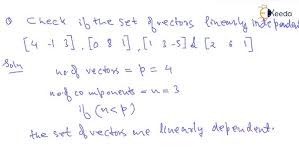 Q Check if the set of vectors linearly independent
Ekeeda
[4 -1 3], [0 8 1], [1 3 -5] & [2 6 1]
Soln
no of vectors = p = 4
no of components = n = 3
if (n < p)
the set of vectors are linearly dependent.